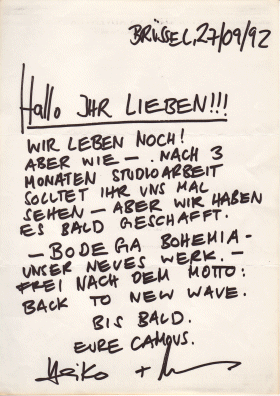 BRÜSSEL, 27/09/92
Hallo IHR LIEBEN!!!
WIR LEBEN NOCH!
ABER WIE — . NACH 3
MONATEN STUDIOARBEIT
SOLLTET IHR UNS MAL
SEHEN — ABER WIR HABEN
ES BALD GESCHAFFT.
— BODEGA BOHEMIA -
UNSER NEUES WERK. —
FREI NACH DEM MOTTO:
BACK TO NEW WAVE.
BIS BALD.
EURE CAMOUS.
Heiko +